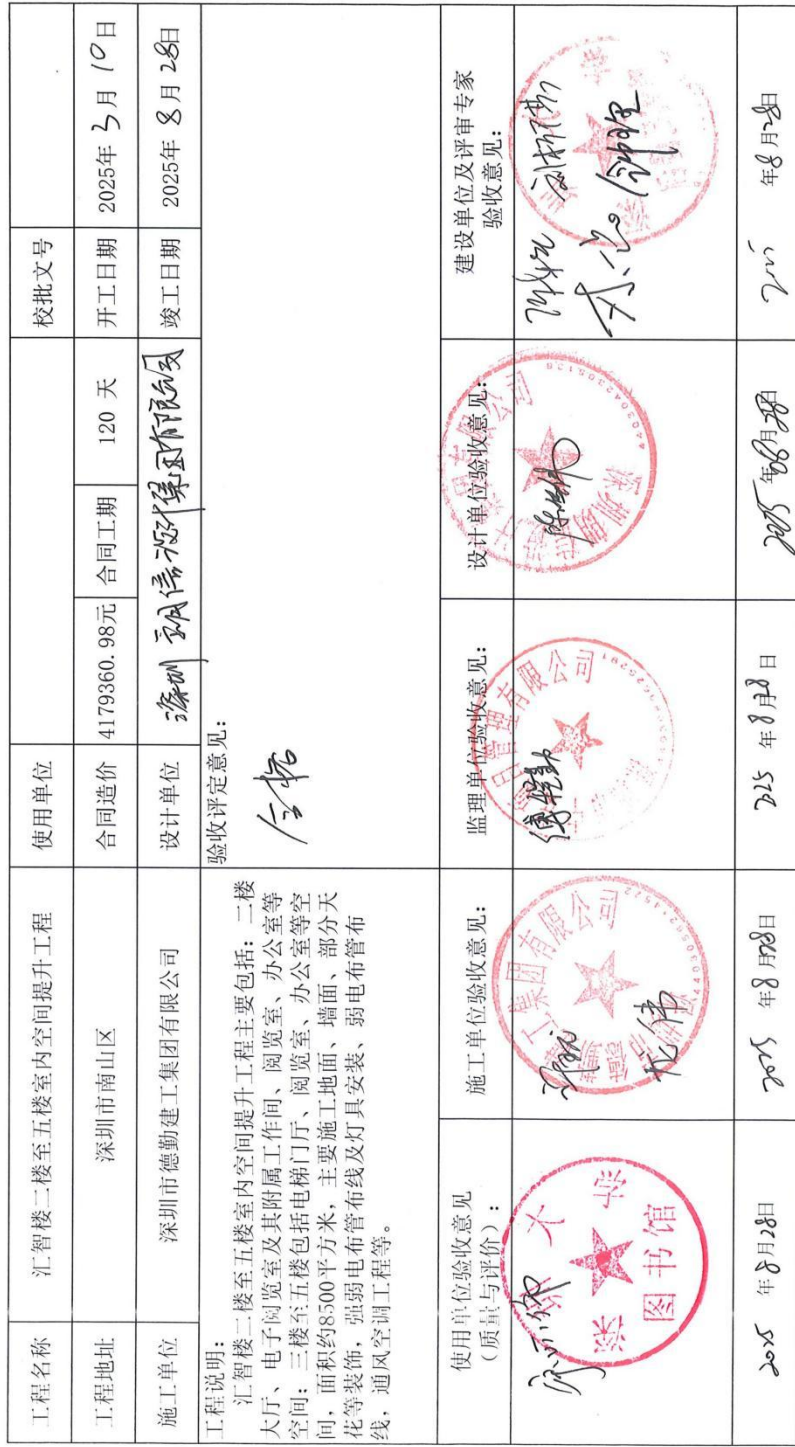 工程名称 汇智楼二楼至五楼室内空间提升工程 使用单位 校批文号
工程地址 深圳市南山区 合同造价 4179360.98元 合同工期 120 天 开工日期 2025年 3月 10日
施工单位 深圳市德勤建工集团有限公司 设计单位 深圳朗信设计集团有限公司 竣工日期 2025年 8月 28日
工程说明:
汇智楼二楼至五楼室内空间提升工程主要包括:二楼
大厅、电子阅览室及其附属工作间、阅览室、办公室等
空间;三楼至五楼包括电梯门厅、阅览室、办公室等空
间,面积约8500平方米,主要施工地面、墙面、部分天
花等装饰,强弱电布管布线及灯具安装、弱电布管布
线,通风空调工程等。
验收评定意见:
合格
使用单位验收意见
(质量与评价):
深圳大学
图书馆
2025 年8月28日
施工单位验收意见:
工集团有限公司
2025 年8月28日
监理单位验收意见:
项目管理有限公司
2025 年8月28日
设计单位验收意见:
深圳朗信设计集团有限公司
4403042305126
2025 年08月28日
建设单位及评审专家
验收意见:
2025 年8月28日